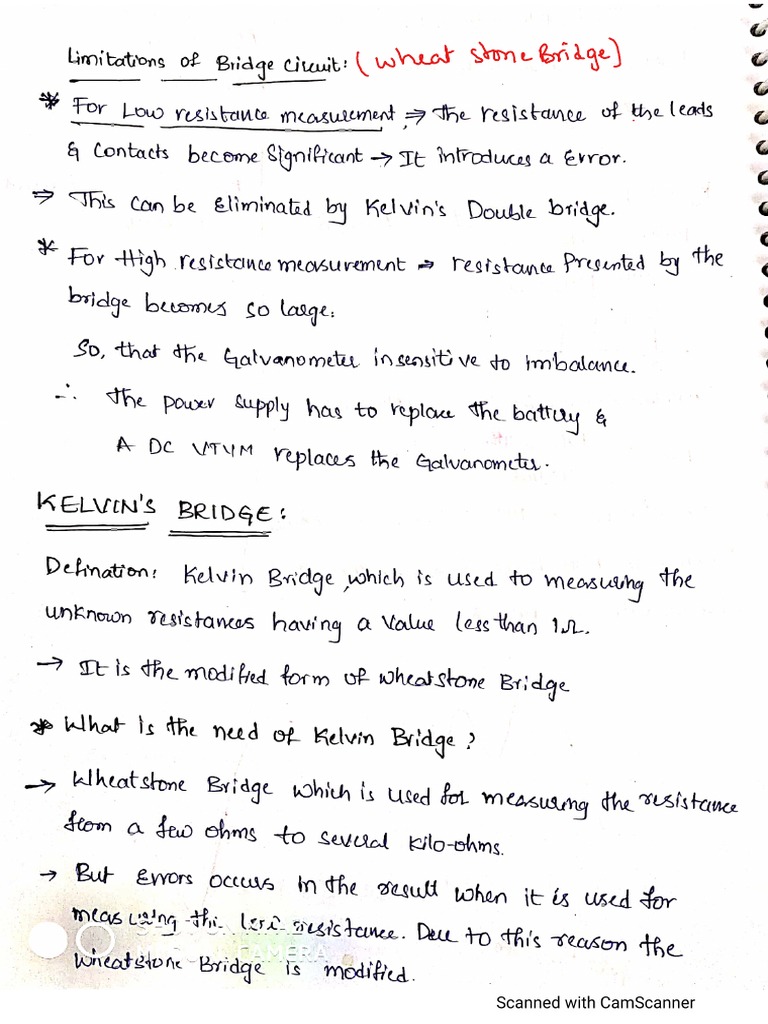 Limitations of Bridge Circuit: (Wheat stone Bridge)
* For Low resistance measurement, ⇒ The resistance of the leads
& Contacts become Significant → It introduces a Error.
⇒ This can be Eliminated by Kelvin's Double bridge.
* For High resistance measurement → resistance Presented by the
bridge becomes so large.
So, that the Galvanometer insensitive to imbalance.
∴ The power supply has to replace the battery &
A DC VTVM replaces the Galvanometer.
KELVIN'S BRIDGE:
Defination: Kelvin Bridge, which is used to measuring the
unknown resistances having a value less than 1Ω.
→ It is the modified form of wheatstone Bridge
* What is the need of Kelvin Bridge?
→ Wheatstone Bridge which is used for measuring the resistance
from a few ohms to several Kilo-ohms.
→ But Errors occurs in the result when it is used for
measuring the less resistance. Due to this reason the
Wheatstone Bridge is modified.
CAMERA
Scanned with CamScanner